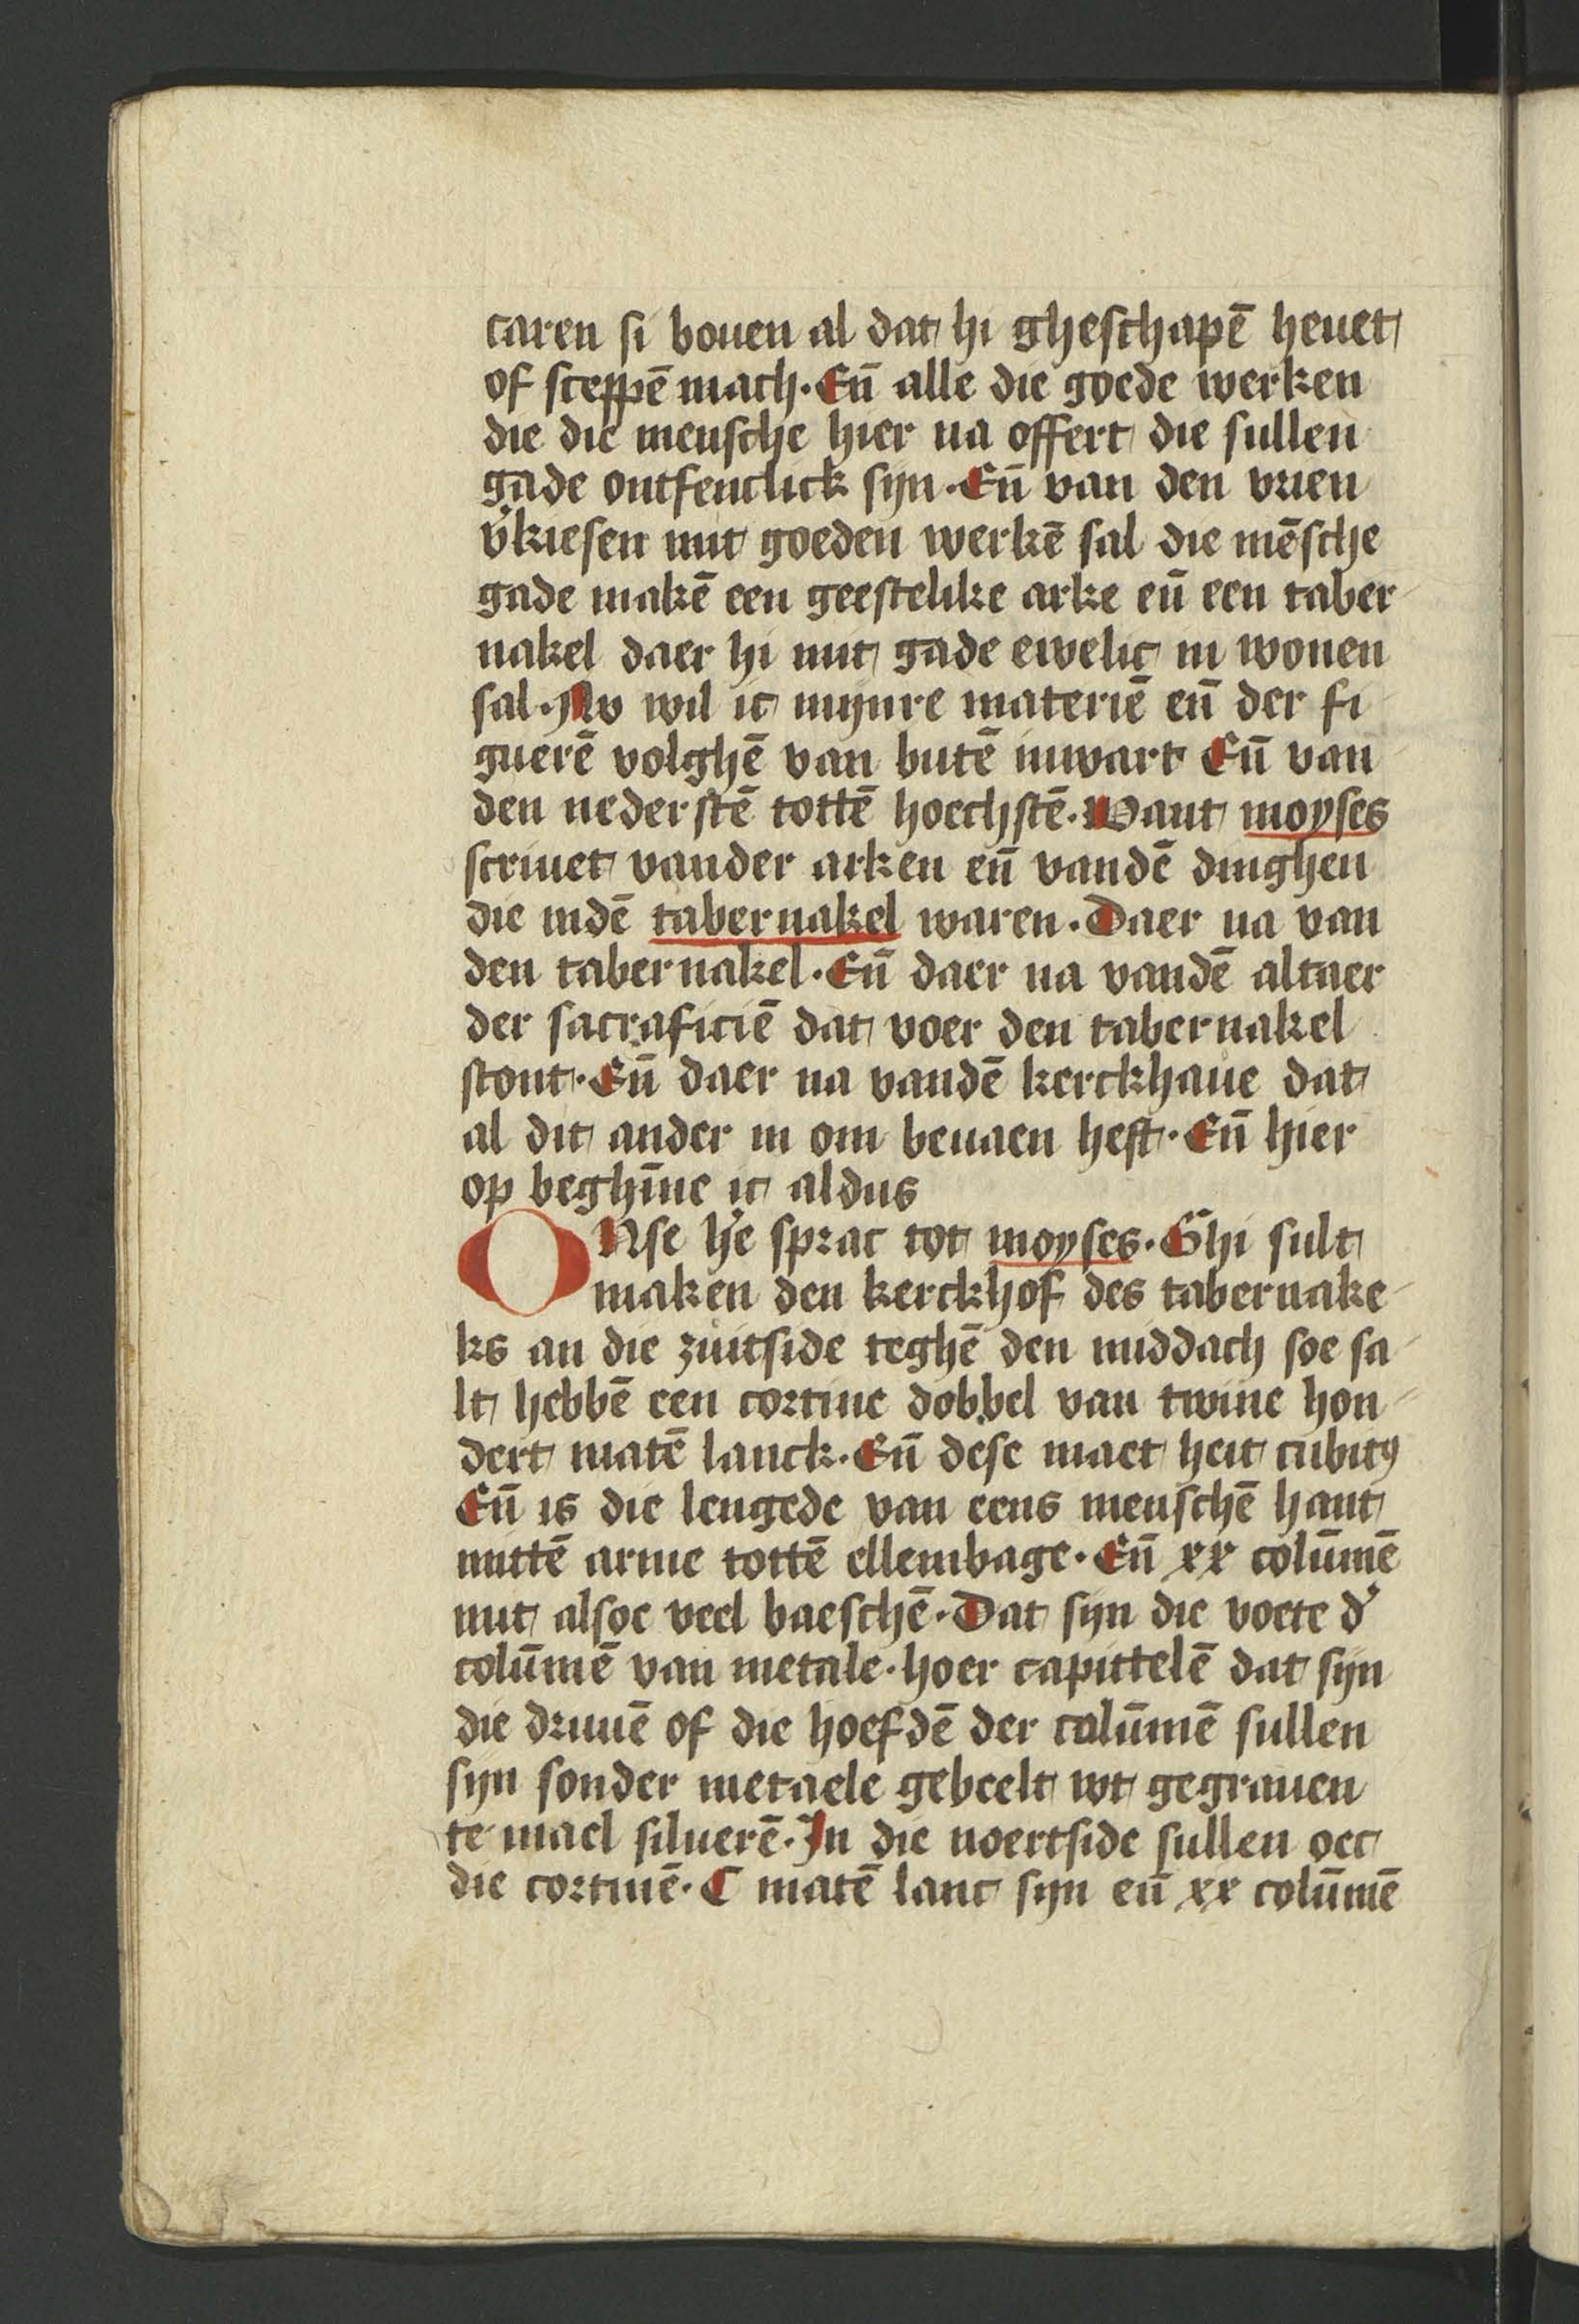 caren si bouen al dat hi gheschapē heuet
of sceppē mach. Eñ alle die goede werken
die die mensche hier na offert die sullen
gade ontfenclick sijn. Eñ van den vrien
v̓kiesen mit goeden werkē sal die mēsche
gade makē een geestelike arke eñ een taber
nakel daer hi mit gade ewelic in wonen
sal. Nv wil ic mijnre materiē eñ der fi
guerē volghē van butē inwart Eñ van
den nederstē tottē hoechstē. Want moyses
scriuet vander arken eñ vandē dinghen
die indē tabernakel waren. Daer na van
den tabernakel. Eñ daer na vandē altaer
der sacraficiē dat voer den tabernakel
stont. Eñ daer na vandē kerckhaue dat
al dit ander in om beuaen heft. Eñ hier
op beghīne ic aldus
ONse he̓ sprac tot moyses. Ghi sult
maken den kerckhof des tabernake
ls an die zuitside teghē den middach soe sa
lt hebbē een cortine dobbel van twine hon
dert matē lanck. Eñ dese maet heit cubitꝰ
Eñ is die lengede van eens menschē hant
mittē arme tottē ellembage. Eñ xx colūmē
mit alsoe veel baeschē. Dat sijn die voete d̓
colūmē van metale. hoer capittelē dat sijn
die druuē of die hoefdē der colūmē sullen
sijn sonder metaele gebeelt wt gegrauen
te mael siluerē. In die noertside sullen oec
die cortinē. C matē lanc sijn eñ xx colūmē